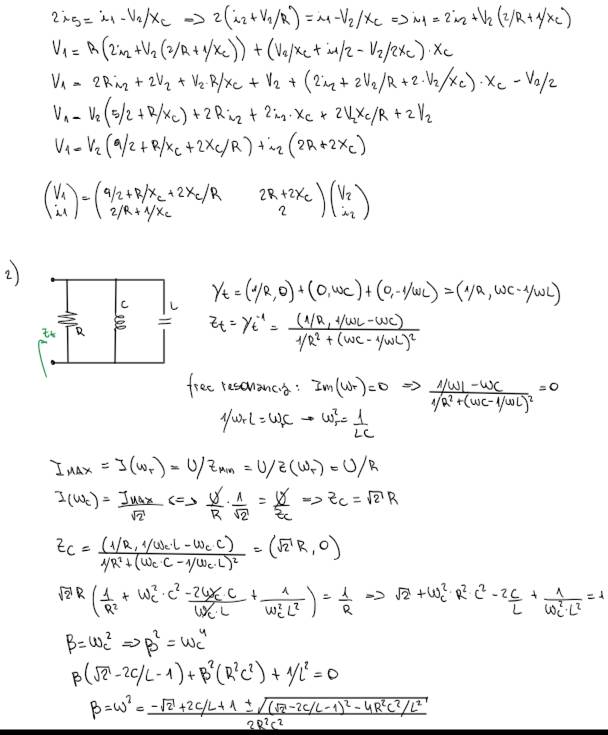 2i₅ = i₁ - V₂/Xc ⇒ 2(i₂+V₂/R) = i₁ - V₂/Xc ⇒ i₁ = 2i₂ + V₂(2/R + 1/Xc)
V₁ = R(2i₂ + V₂(2/R + 1/Xc)) + (V₂/Xc + i₁/2 - V₂/2Xc)·Xc
V₁ = 2Ri₂ + 2V₂ + V₂·R/Xc + V₂ + (2i₂ + 2V₂/R + 2·V₂/Xc)·Xc - V₂/2
V₁ = V₂(5/2 + R/Xc) + 2Ri₂ + 2i₂·Xc + 2V₂Xc/R + 2V₂
V₁ = V₂(9/2 + R/Xc + 2Xc/R) + i₂(2R + 2Xc)
(V₁ i₁) = (9/2 + R/Xc + 2Xc/R 2R + 2Xc
2/R + 1/Xc 2)(V₂ i₂)
2)
Zt R C L
Yt = (1/R, 0) + (0, ωC) + (0, -1/ωL) = (1/R, ωC - 1/ωL)
Zt = Yt⁻¹ = (1/R, 1/ωL - ωC) / 1/R² + (ωC - 1/ωL)²
frec resonancia: Im(ωr) = 0 ⇒ 1/ωL - ωC / 1/R² + (ωC - 1/ωL)² = 0
1/ωrL = ωrC → ωr² = 1/LC
IMAX = I(ωr) = U/Zmin = U/Z(ωr) = U/R
I(ωc) = IMAX/√2 <=> U/R · 1/√2 = U/Zc ⇒ Zc = √2 R
Zc = (1/R, 1/ωc·L - ωc·C) / 1/R² + (ωc·C - 1/ωc·L)² = (√2 R, 0)
√2 R (1/R² + ωc²·C² - 2ωc·C/ωc·L + 1/ωc²L²) = 1/R ⇒ √2 + ωc²·R²·C² - 2C/L + 1/ωc²·L² = 1
β = ωc² ⇒ β² = ωc⁴
β(√2 - 2C/L - 1) + β²(R²C²) + 1/L² = 0
β = ω² = -√2 + 2C/L + 1 ± √((√2 - 2C/L - 1)² - 4R²C²/L²) / 2R²C²